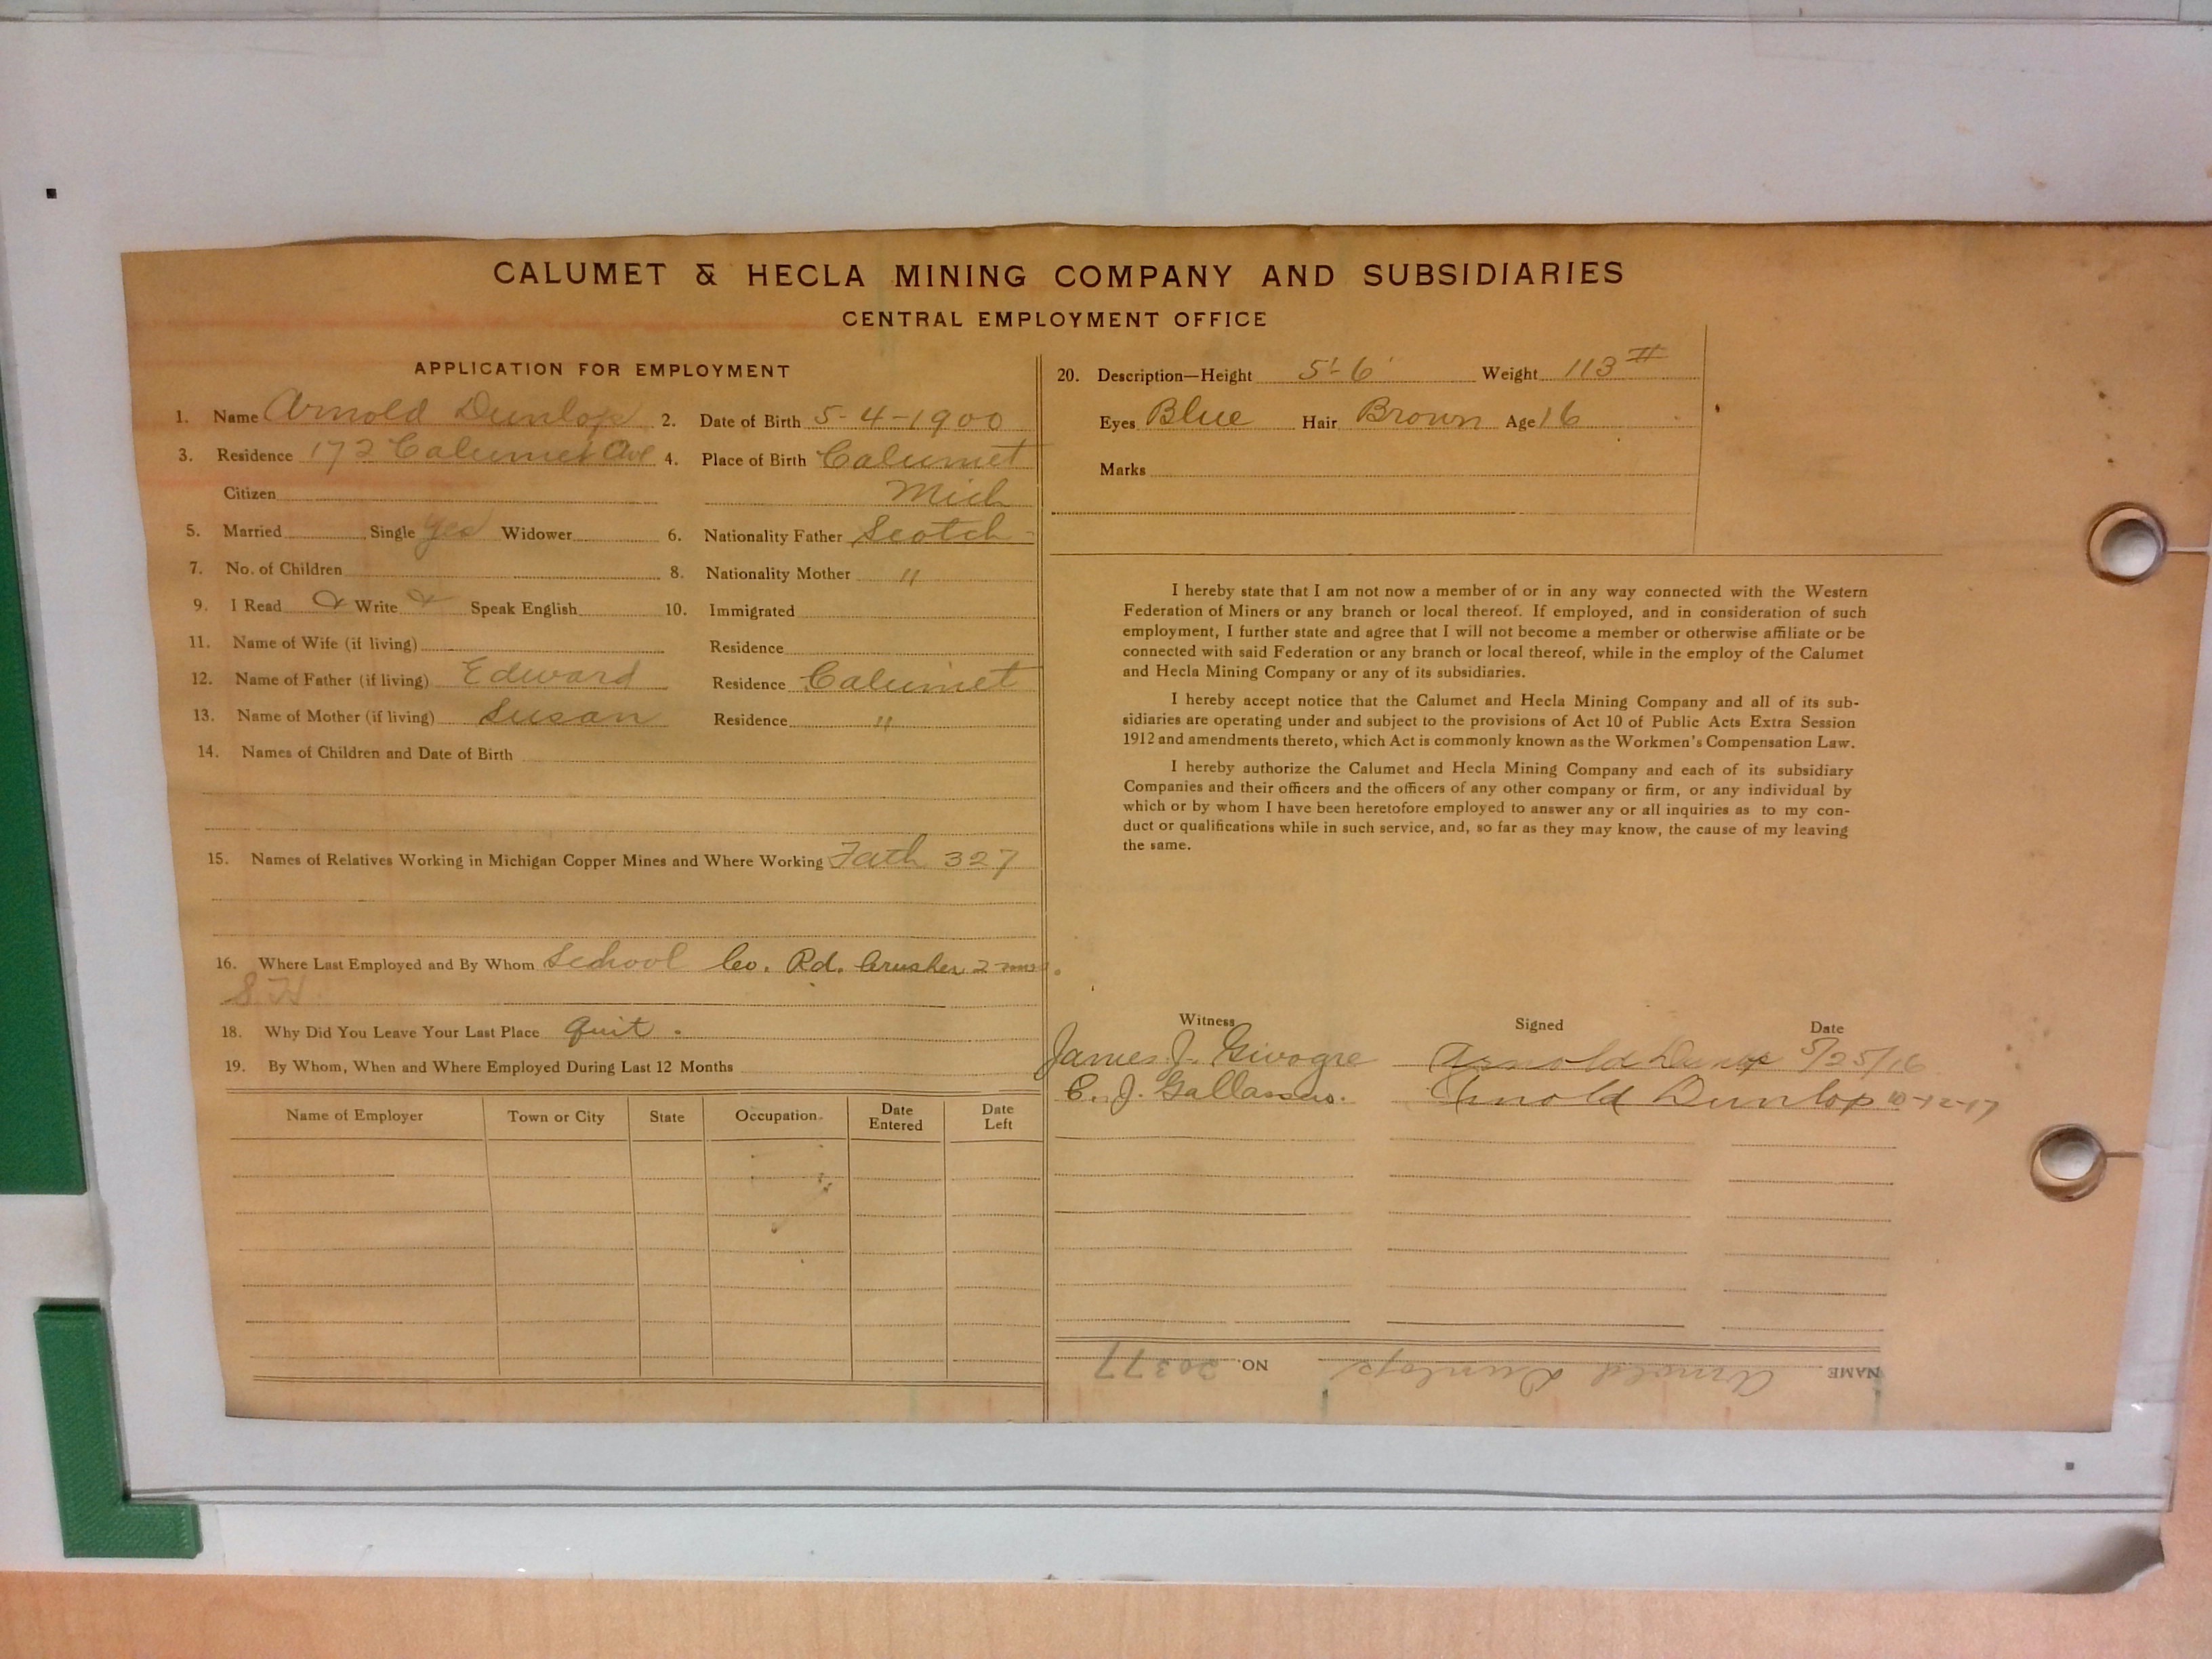 CALUMET & HECLA MINING COMPANY AND SUBSIDIARIES
CENTRAL EMPLOYMENT OFFICE
APPLICATION FOR EMPLOYMENT
1. Name Arnold Dunlop 2. Date of Birth 5-4-1900
3. Residence 172 Calumet Ave 4. Place of Birth Calumet
Citizen Mich
5. Married Single Yes Widower 6. Nationality Father Scotch
7. No. of Children 8. Nationality Mother "
9. I Read Write Speak English 10. Immigrated
11. Name of Wife (if living) Residence
12. Name of Father (if living) Edward Residence Calumet
13. Name of Mother (if living) Susan Residence "
14. Names of Children and Date of Birth
15. Names of Relatives Working in Michigan Copper Mines and Where Working Fath 327
16. Where Last Employed and By Whom School Co. Rd. Crusher 2 mos.
S.H.
18. Why Did You Leave Your Last Place quit.
19. By Whom, When and Where Employed During Last 12 Months
Name of Employer Town or City State Occupation Date Entered Date Left
20. Description—Height 5'-6' Weight 113 #
Eyes Blue Hair Brown Age 16
Marks
I hereby state that I am not now a member of or in any way connected with the Western
Federation of Miners or any branch or local thereof. If employed, and in consideration of such
employment, I further state and agree that I will not become a member or otherwise affiliate or be
connected with said Federation or any branch or local thereof, while in the employ of the Calumet
and Hecla Mining Company or any of its subsidiaries.
I hereby accept notice that the Calumet and Hecla Mining Company and all of its sub-
sidiaries are operating under and subject to the provisions of Act 10 of Public Acts Extra Session
1912 and amendments thereto, which Act is commonly known as the Workmen's Compensation Law.
I hereby authorize the Calumet and Hecla Mining Company and each of its subsidiary
Companies and their officers and the officers of any other company or firm, or any individual by
which or by whom I have been heretofore employed to answer any or all inquiries as to my con-
duct or qualifications while in such service, and, so far as they may know, the cause of my leaving
the same.
Witness Signed Date
James J. Givogre Arnold Dunlop 5/25/16
C. J. Arnold Dunlop 10-12-17
NAME Arnold Dunlop NO. 20377